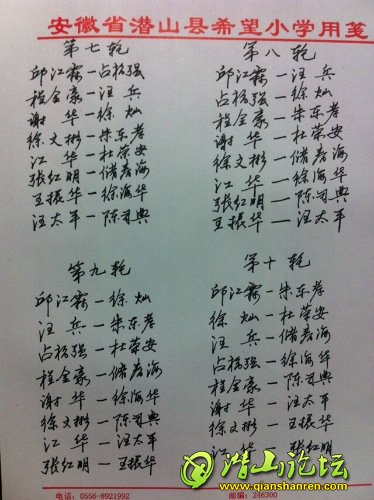 安徽省潜山县希望小学用笺
第七轮
邱江霖一占松强
程金豪一汪兵
谢华一徐灿
徐文彬一朱东孝
江华一杜荣安
张红明一储彦海
王振华一徐海华
汪太平一陈习典
第八轮
邱江霖一汪兵
占松强一徐灿
程金豪一朱东孝
谢华一杜荣安
徐文彬一储彦海
江华一徐海华
张红明一陈习典
王振华一汪太平
第九轮
邱江霖一徐灿
汪兵一朱东孝
占松强一杜荣安
程金豪一储彦海
谢华一徐海华
徐文彬一陈习典
江华一汪太平
张红明一王振华
第十轮
邱江霖一朱东孝
徐灿一杜荣安
汪兵一储彦海
占松强一徐海华
程金豪一陈习典
谢华一汪太平
徐文彬一王振华
江华一张红明
电话:0556-8921992
邮编:246300
潜山论坛
www.qianshanren.com